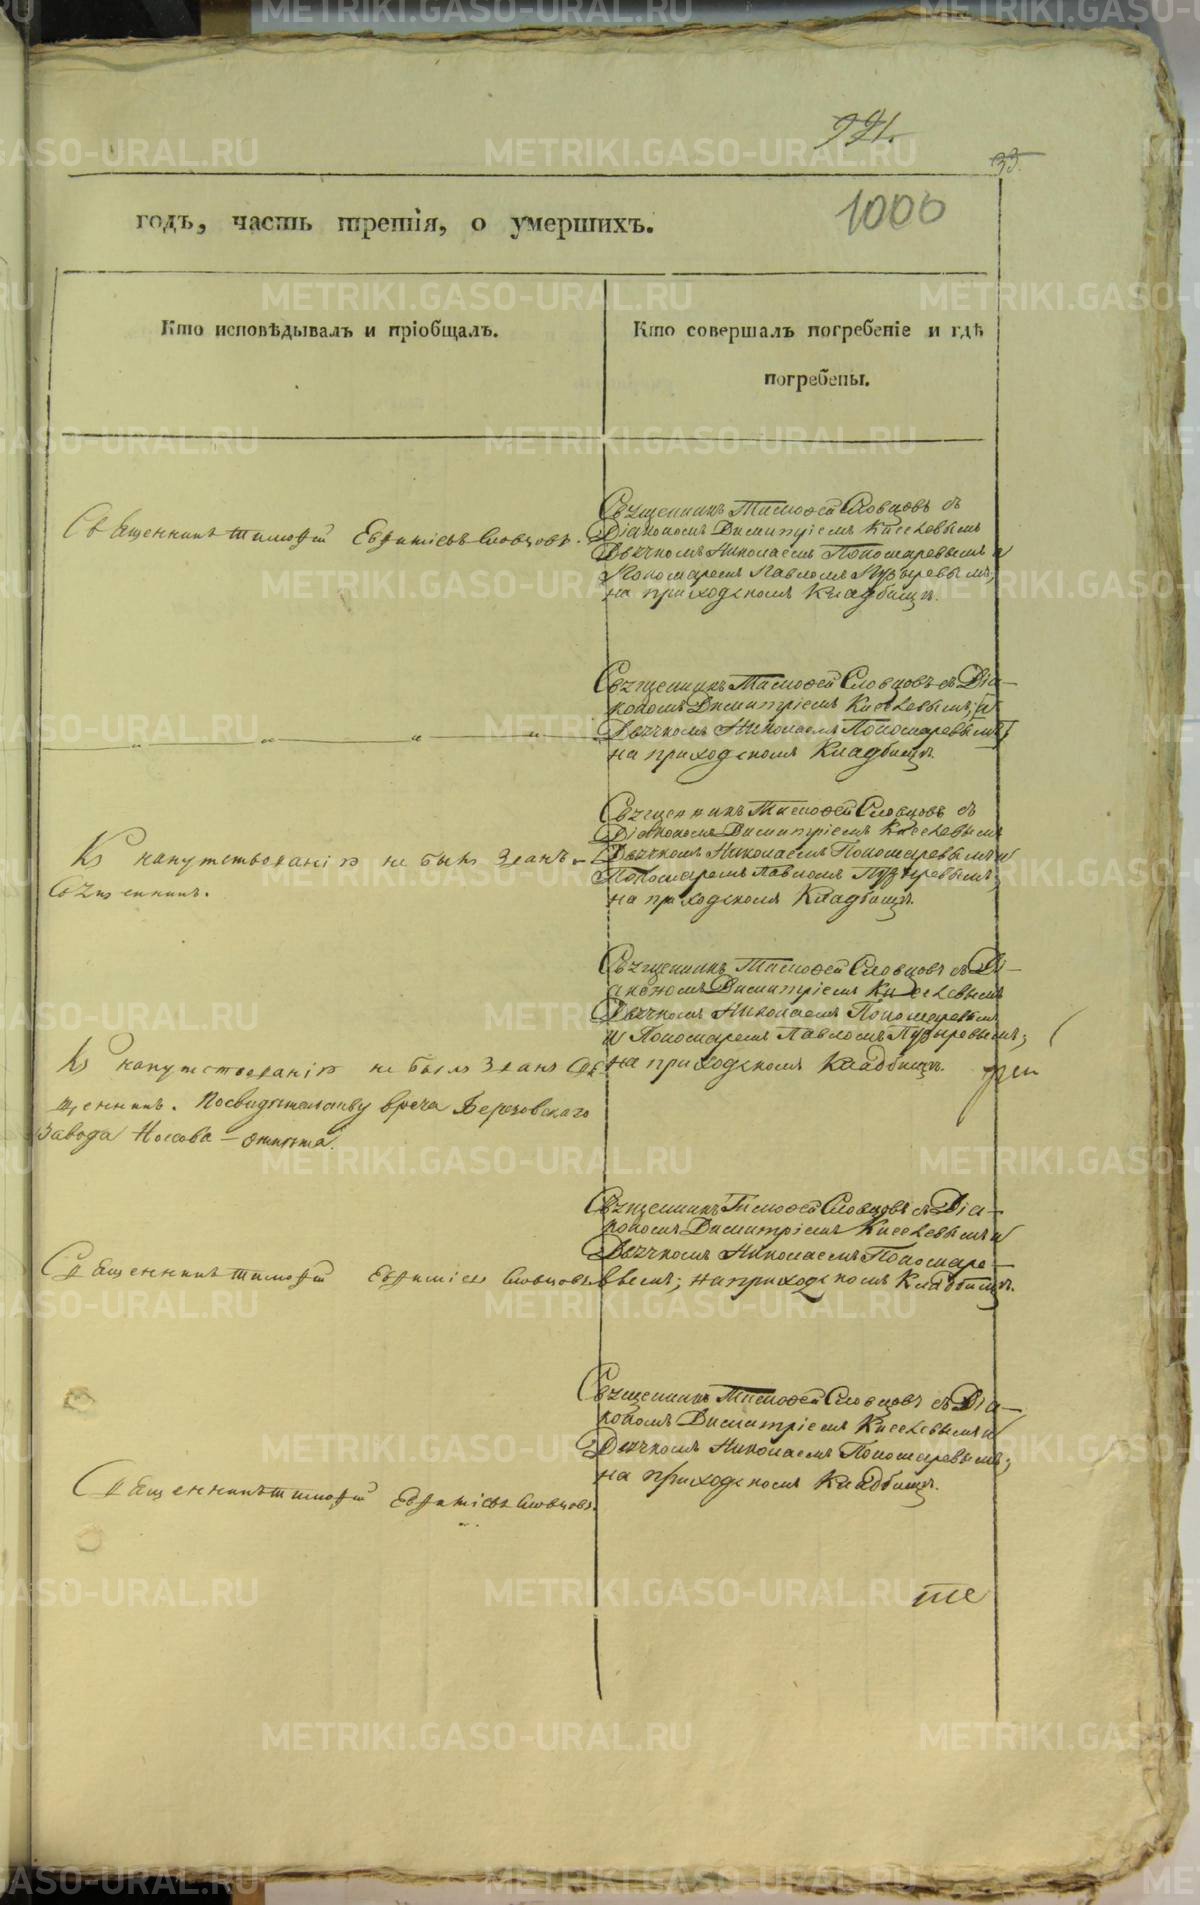 991.
33.
1000
годъ, часть третія, о умершихъ.
Кто исповѣдывалъ и пріобщалъ.
Кто совершалъ погребеніе и гдѣ
погребены.
Священникъ Тимоѳей Евѳиміевъ Словцовъ.
Священникъ Тимоѳей Словцовъ съ
Діакономъ Димитріемъ Киселевымъ
Дьячкомъ Николаемъ Пономаревымъ и
Пономаремъ Павломъ Пузыревымъ;
на приходскомъ Кладбищѣ.
„ „ „ „
Священникъ Тимоѳей Словцовъ съ Діа-
кономъ Димитріемъ Киселевымъ и
Дьячкомъ Николаемъ Пономаревымъ;
на приходскомъ Кладбищѣ.
Къ напутствованію не былъ званъ
Священникъ.
Священникъ Тимоѳей Словцовъ съ
Діакономъ Димитріемъ Киселевымъ
Дьячкомъ Николаемъ Пономаревымъ и
Пономаремъ Павломъ Пузыревымъ;
на приходскомъ Кладбищѣ.
Къ напутствованію не былъ званъ Свя-
щенникъ. По свидѣтельству врача Березовскаго
Завода Носова –
Священникъ Тимоѳей Словцовъ съ Ді-
акономъ Димитріемъ Киселевымъ
Дьячкомъ Николаемъ Пономаревымъ
и Пономаремъ Павломъ Пузыревымъ;
на приходскомъ Кладбищѣ.
Священникъ Тимоѳей Евѳиміевъ Словцовъ
Священникъ Тимоѳей Словцовъ съ Діа-
кономъ Димитріемъ Киселевымъ и
Дьячкомъ Николаемъ Пономаре-
вымъ; на приходскомъ Кладбищѣ.
Священникъ Тимоѳей Евѳиміевъ Словцовъ.
Священникъ Тимоѳей Словцовъ съ Діа-
кономъ Димитріемъ Киселевымъ и
Дьячкомъ Николаемъ Пономаревымъ;
на приходскомъ Кладбищѣ.
METRIKI.GASO-URAL.RU